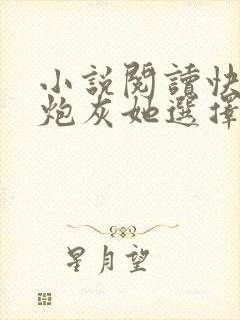 小說閱讀快
炮灰她選擇
星月望